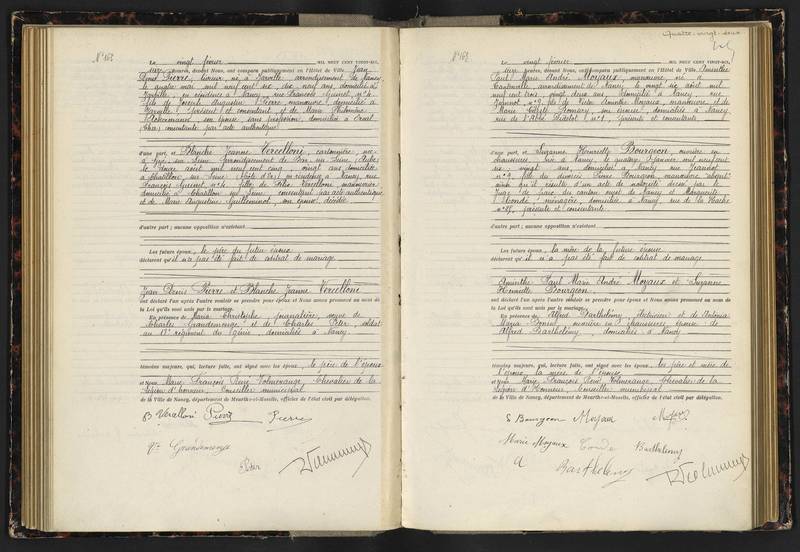 Quatre-vingt-deux
N° 161
Le vingt février MIL NEUF CENT VINGT-SIX,
heures, devant Nous, ont comparu publiquement en l'Hôtel de Ville Jean
Denis Pierre, né à Jarville arrondissement de Nancy
le quatre mai mil neuf cent six, dix-neuf ans, domicilié à
Jarville, en résidence à Nancy, rue François Guinet, n° 4
fils de Joseph Augustin Pierre, manœuvre, domicilié à
Jarville, présent et consentant, et de Marie Philomène
son épouse, sans profession, domiciliée à
consentante par acte authentique
d'une part, et Blanche Jeanne Vercelloni, cartonnière, née
à sur Seine, arrondissement de Bar-sur-Seine (Aube)
le août mil neuf cent cinq, vingt ans, domiciliée
à Châtillon sur Seine (Côte d'Or), en résidence à Nancy, rue
François Guinet, n° 4, fille de Félix Vercelloni,
domicilié à Châtillon sur Seine, consentant par acte authentique
et de Marie Augustine Guilleminot, son épouse, décédée
d'autre part ; aucune opposition n'existant
Les futurs époux, le père du futur époux
déclarent qu'il n'a pas été fait de contrat de mariage.
Jean Denis Pierre et Blanche Jeanne Vercelloni
ont déclaré l'un après l'autre vouloir se prendre pour époux et Nous avons prononcé au nom de
la Loi qu'ils sont unis par le mariage.
En présence de Marie Christophe, journalière, veuve de
Charles Grandemange et de Charles Peter, soldat
au régiment du Génie, domiciliés à Nancy
témoins majeurs, qui, lecture faite, ont signé avec les époux, le père de l'époux
et Nous, Marie François René Volmerange, Chevalier de la
Légion d'honneur, Conseiller municipal
de la Ville de Nancy, département de Meurthe-et-Moselle, officier de l'état civil par délégation.
Pierre Pierre
Vve Grandemange
Peter
N° 162
Le vingt février MIL NEUF CENT VINGT-SIX,
heures, devant Nous, ont comparu publiquement en l'Hôtel de Ville
Paul Marie André Moyaux, manœuvre, né à
arrondissement de Nancy, le vingt six août mil
neuf cent trois, vingt deux ans, domicilié à Nancy, rue
Jeannot n° 9, fils de Moyaux, manœuvre, et de
Marie son épouse, domiciliés à Nancy,
rue de l'Abbé Didelot n° 1, présents et consentants
d'une part, et Suzanne Henriette Bourgeon, ouvrière en
chaussures, née à Nancy, le quatorze janvier mil neuf cent
six, vingt ans, domiciliée à Nancy, rue Jeannot
n° 9, fille de Bourgeon, manœuvre, absent
ainsi qu'il résulte d'un acte de notoriété dressé par le
Juge de paix du canton nord de Nancy et Marguerite
Condé, ménagère, domiciliée à Nancy, rue de la Hache
présente et consentante
d'autre part ; aucune opposition n'existant
Les futurs époux, la mère de la future épouse
déclarent qu'il n'a pas été fait de contrat de mariage.
Paul Marie André Moyaux et Suzanne
Henriette Bourgeon
ont déclaré l'un après l'autre vouloir se prendre pour époux et Nous avons prononcé au nom de
la Loi qu'ils sont unis par le mariage.
En présence de Alfred Barthélémy, électricien et de Antonia
Maria ouvrière en chaussures, épouse de
Alfred Barthélémy, domiciliés à Nancy
témoins majeurs, qui, lecture faite, ont signé avec les époux, les père et mère de
l'époux, la mère de l'épouse,
et Nous, Marie François René Volmerange, Chevalier de la
Légion d'Honneur, Conseiller municipal
de la Ville de Nancy, département de Meurthe-et-Moselle, officier de l'état civil par délégation.
S Bourgeon Moyaux
Marie Moyaux Condé Barthélémy
A Barthélémy